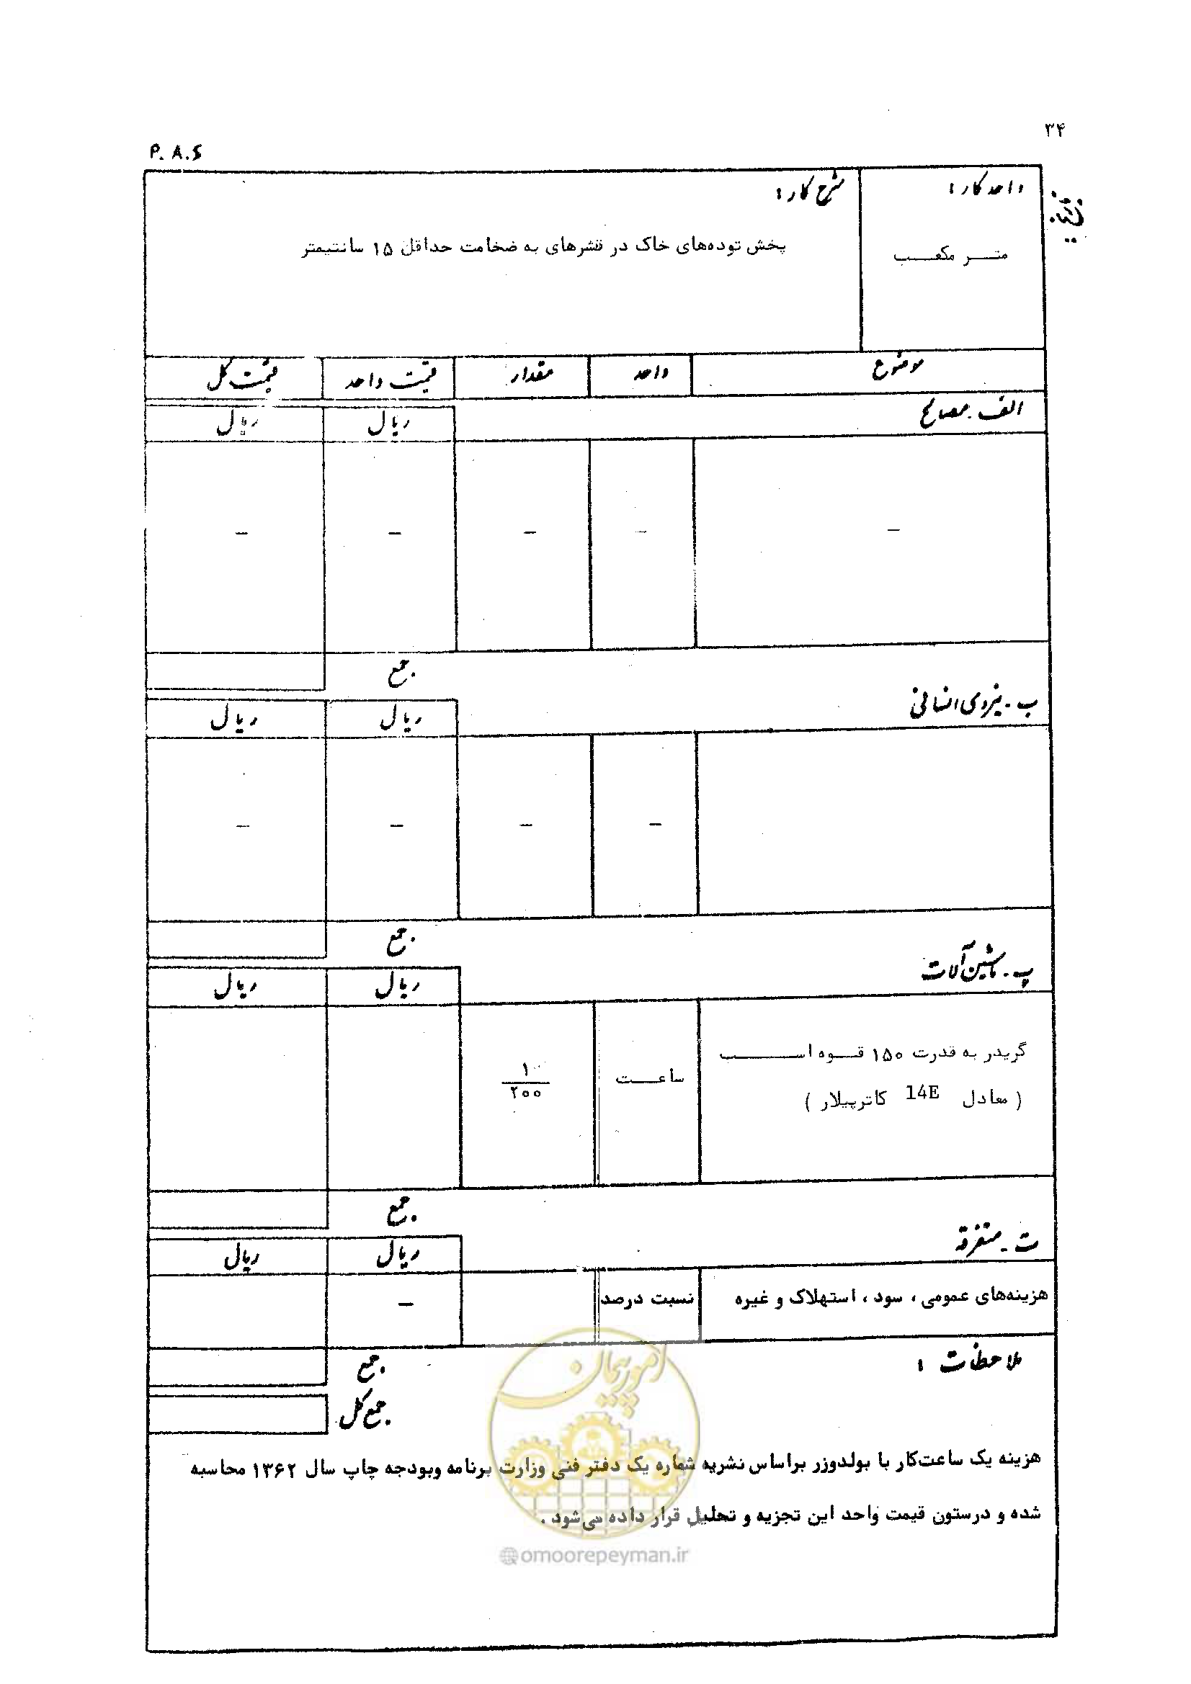 ۳۴
P. A. S
واحد کار :
شرح کار :
متــر مکعــب
پخش توده‌های خاک در قشرهای به ضخامت حداقل ۱۵ سانتیمتر
موضوع واحد مقدار قیمت واحد قیمت کل
الف - مصالح ریال ریال
– – – – –
جمع
ب - نیروی انسانی
ریال ریال
– – – –
جمع
پ - ماشین آلات
ریال ریال
گریدر به قدرت ۱۵۰ قـوه اســـب
( معادل 14E کاترپیلار )
ساعــت
۱
۲۰۰
جمع
ت - متفرقه
ریال ریال
هزینه‌های عمومی ، سود ، استهلاک و غیره نسبت درصد –
جمع
ملاحظات :
جمع کل
هزینه یک ساعت‌کار با بولدوزر براساس نشریه شماره یک دفتر فنی وزارت برنامه وبودجه چاپ سال ۱۳۶۲ محاسبه
شده و درستون قیمت واحد این تجزیه و تحلیل قرار داده می‌شود .
امور پیمان
@omoorepeyman.ir